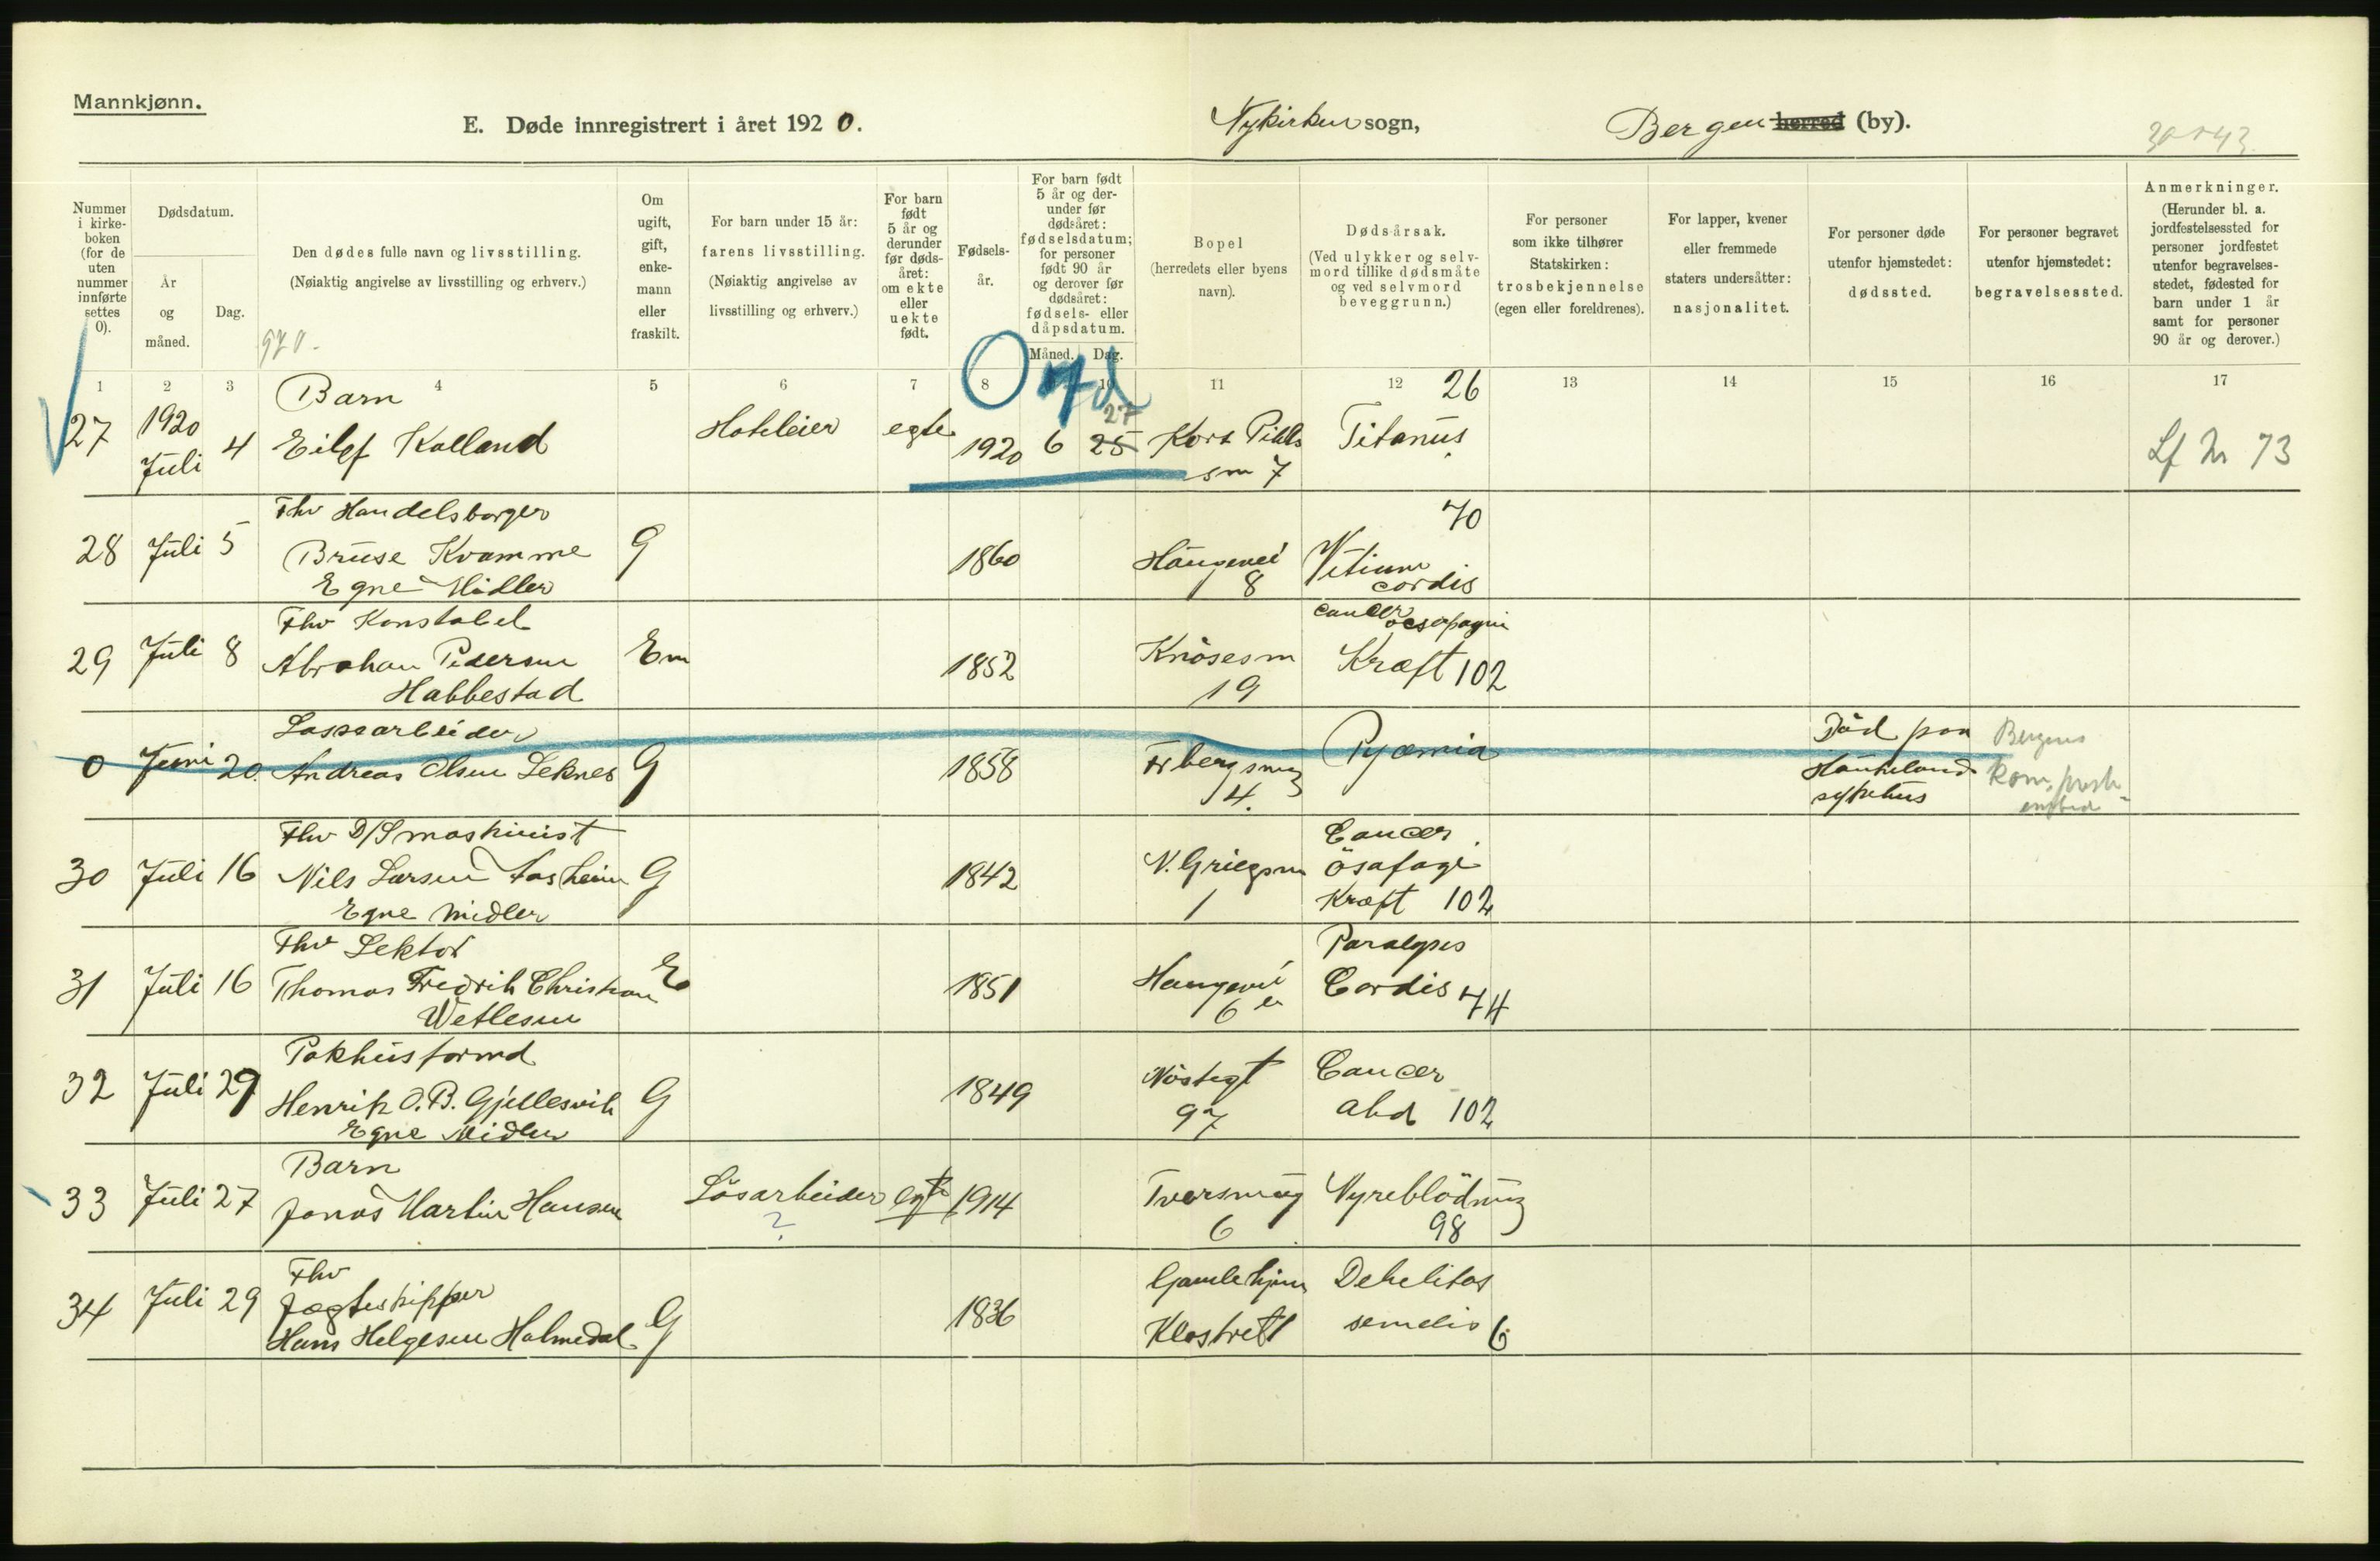 Mannkjønn.
E. Døde innregistrert i året 1920.
Nykirken sogn,
Bergen herred (by).
Nummer i kirke-boken (for de uten nummer innførte settes 0).
Dødsdatum.
År og måned.
Dag.
Den dødes fulle navn og livsstilling.
(Nøiaktig angivelse av livsstilling og erhverv.)
Om ugift, gift, enke-mann eller fraskilt.
For barn under 15 år:
farens livsstilling.
(Nøiaktig angivelse av livsstilling og erhverv.)
For barn født 5 år og derunder før døds-året: om ekte eller uekte født.
Fødsels-år.
For barn født 5 år og der-under før dødsåret: fødselsdatum; for personer født 90 år og derover før dødsåret: fødsels- eller dåpsdatum.
Måned. Dag.
Bopel
(herredets eller byens navn).
Dødsårsak.
(Ved ulykker og selv-mord tillike dødsmåte og ved selvmord beveggrunn.)
For personer som ikke tilhører Statskirken:
trosbekjennelse
(egen eller foreldrenes).
For lapper, kvener eller fremmede staters undersåtter:
nasjonalitet.
For personer døde utenfor hjemstedet:
dødssted.
For personer begravet utenfor hjemstedet:
begravelsessted.
Anmerkninger.
(Herunder bl. a. jordfestelsessted for personer jordfestet utenfor begravelses-stedet, fødested for barn under 1 år samt for personer 90 år og derover.)
1 2 3 4 5 6 7 8 10 11 12 13 14 15 16 17
Barn 26
27 1920 Juli 4 Eilef Kolland Hoteleier egte 1920 6 25 27 Kort Piils sm 7 Titanus Lf Nr 73
Fhv Handelsborger 70
28 Juli 5 Bruse Kvamme G 1860 Haugevei 8 Vitium cordis
Egne Midler
Fhv Konstabel Cancer
29 Juli 8 Abraham Pedersen Em 1852 Knösesm 19 Kræft 102
Habbestad
Lossearbeider Död paa Bergens
0 Juni 20. Andreas Olsen Leknes G 1858 4. Pyæmia Haukeland sykehus
Fhv D/S maskinist Cancer
30 Juli 16 Nils Larsen G 1842 N. Griegsm 1 ösafagi
Egne Midler Kræft 102
Fhv Lektor Paralyses
31 Juli 16 Thomas Fredrik Christian E 1851 Haugevei 6 Cordis 74
Wetlesen
Pakhusformd
32 Juli 29 Henrik O. B. Gjellesvik G 1849 Nöstegt 97 Cancer abd 102
Egne Midler
Barn
33 Juli 27 Jonas Martin Hansen Lösarbeider ? egte 1914 Tversmug 6 Nyreblödning 98
Fhv
34 Juli 29 Jægteskipper Gamlehjem Debelitas
Hans Helgesen Holmedal G 1836 Klostret 1 senelis 6